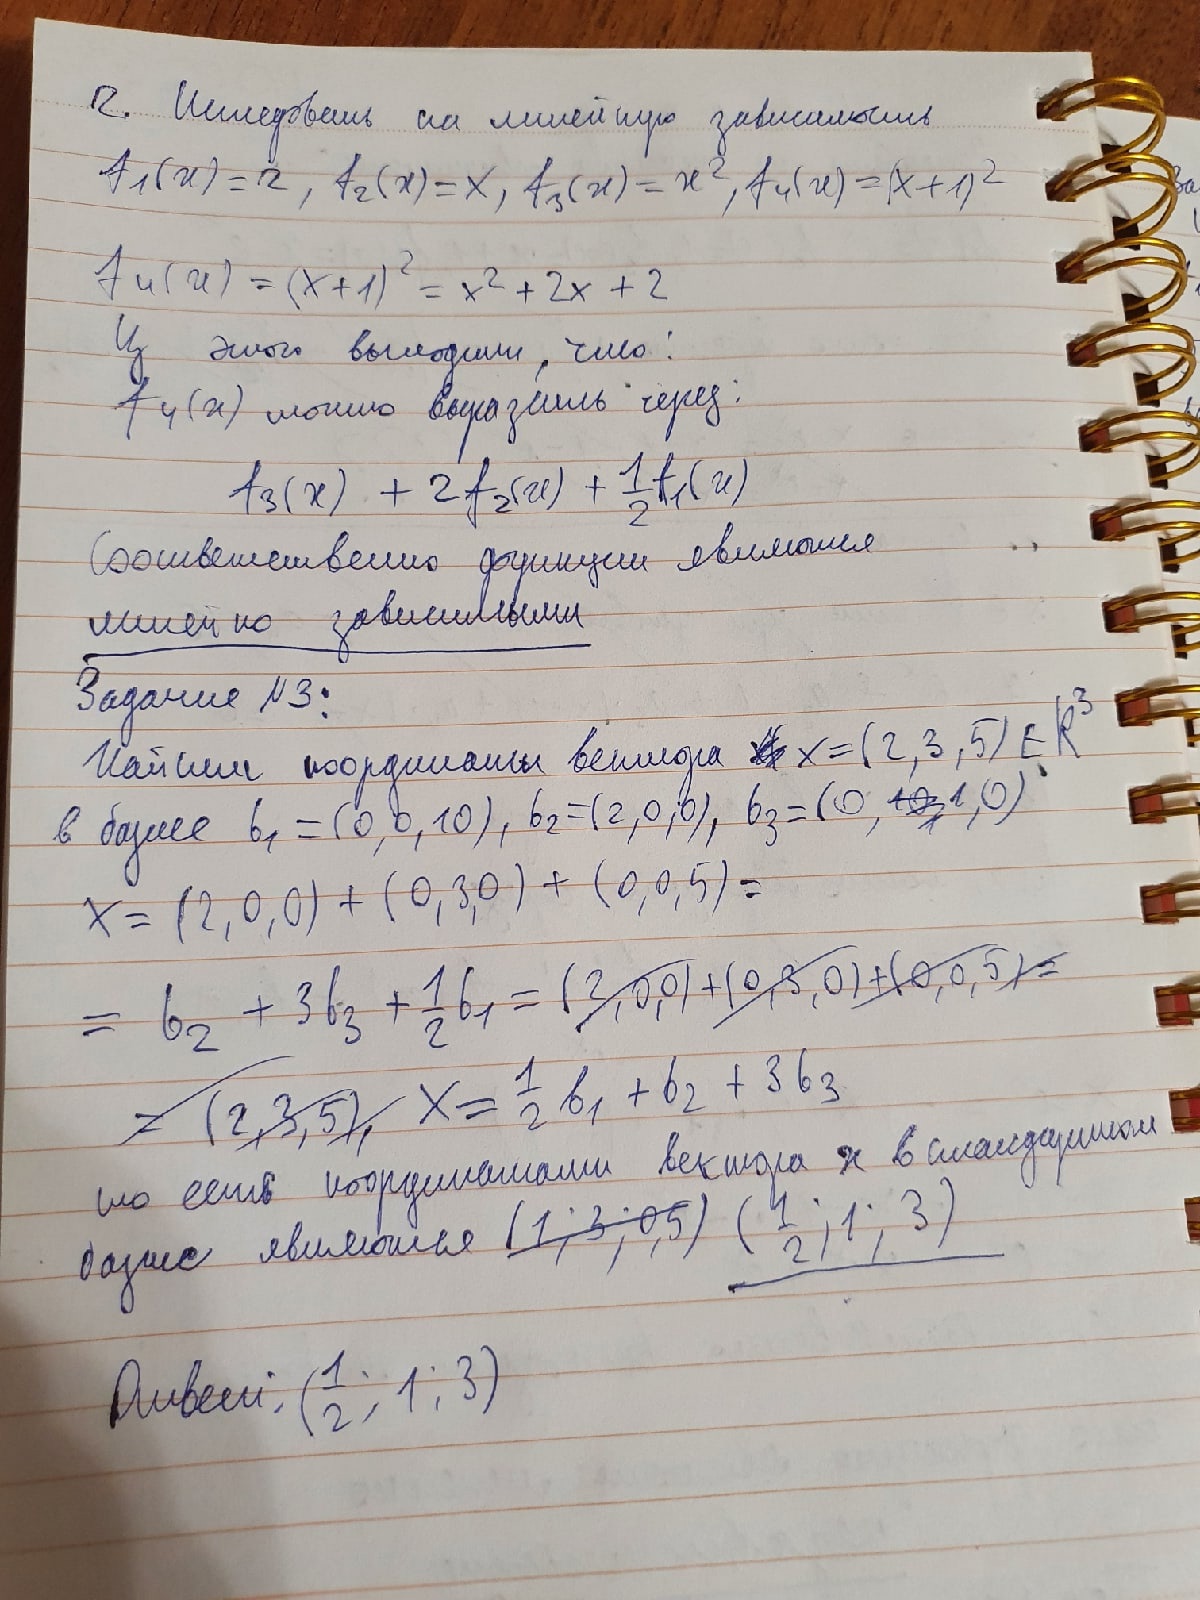 2. Исследовать на линейную зависимость
f1(x) = 2, f2(x) = x, f3(x) = x², f4(x) = (x+1)²
f4(x) = (x+1)² = x² + 2x + 2
Из этого выходит, что:
f4(x) можно выразить через:
f3(x) + 2f2(x) + 1/2 f1(x)
Соответственно функции являются
линейно зависимыми
Задание №3:
Найти координаты вектора x = (2,3,5) ∈ R³
в базисе b1 = (0,0,10), b2 = (2,0,0), b3 = (0,1,0)
x = (2,0,0) + (0,3,0) + (0,0,5) =
= b2 + 3b3 + 1/2 b1 = (2,0,0) + (0,3,0) + (0,0,5) =
= (2,3,5), x = 1/2 b1 + b2 + 3b3
то есть координатами вектора x в стандартном
базисе являются (1; 3; 0,5) (1/2; 1; 3)
Ответ: (1/2; 1; 3)